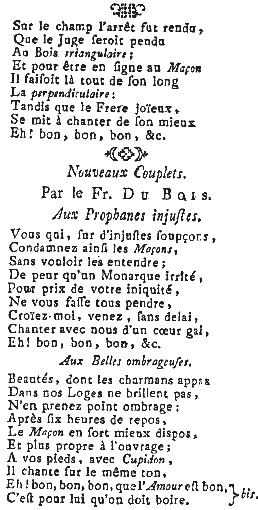 Sur le champ l'arrêt fut rendu,
Que le Juge seroit pendu
Au Bois triangulaire;
Et pour être en signe au Maçon
Il faisoit là tout de son long
La perpendiculaire:
Tandis que le Frere joïeux,
Se mit à chanter de son mieux
Eh! bon, bon, bon, &c.
Nouveaux Couplets.
Par le Fr. DU BOIS.
Aux Prophanes injustes.
Vous qui, sur d'injustes soupçons,
Condamnez ainsi les Maçons,
Sans vouloir les entendre;
De peur qu'un Monarque irrité,
Pour prix de votre iniquité,
Ne vous fasse tous pendre,
Croïez-moi, venez, sans delai,
Chanter avec nous d'un cœur gai,
Eh! bon, bon, bon, &c.
Aux Belles ombrageuses.
Beautés, dont les charmans appas
Dans nos Loges ne brillent pas,
N'en prenez point ombrage:
Après six heures de repos,
Le Maçon en sort mieux dispos,
Et plus propre à l'ouvrage;
A vos pieds, avec Cupidon,
Il chante sur le même ton,
Eh! bon, bon, bon, que l'Amour est bon, } bis.
C'est pour lui qu'on doit boire.